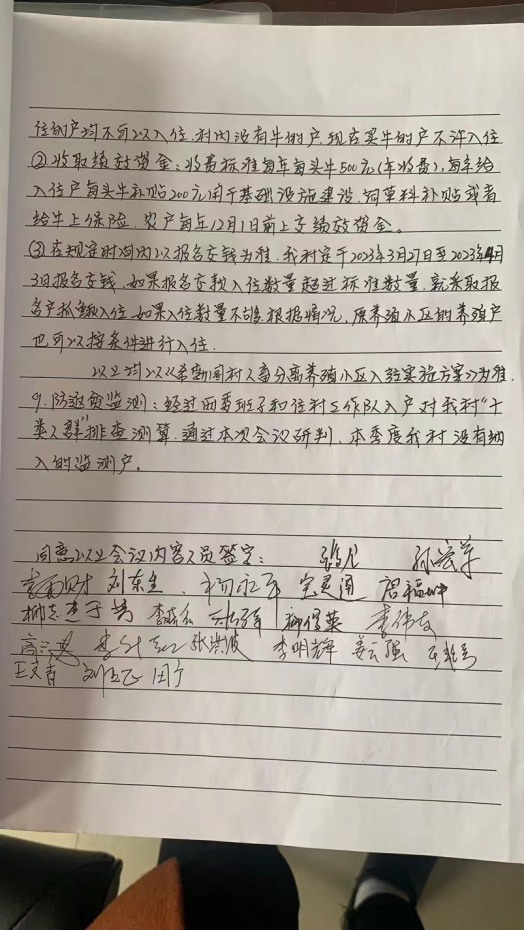 住的户均不可以入住.村内没有牛的户.现在买牛的户不许入住
②收取绩效资金:收费标准每年每头牛500元(年收费),每年给
入住户每头牛补贴200元用于基础设施建设.饲草料补贴或者
给牛上保险.农户每年12月1日前上交绩效资金。
③在规定时间内以报名交钱为准.我村定于2023年3月27日至2023年4月
3日报名交钱.如果报名交款入住数量超过标准数量.就采取报
名户抓阄入住.如果入住数量不够根据情况.原养殖小区的养殖户
也可以按条件进行入住.
以上均以《希勃图村人畜分离养殖小区入驻实施方案》为准.
9.防返贫监测:经过两委班子和住村工作队入户对我村“十
类人群”排查测算.通过本次会议研判.本季度我村没有纳
入的监测户。
同意以上会议内容人员签字:
刘东生
李伟友
张洪波 李明辉 姜云强
王文吉